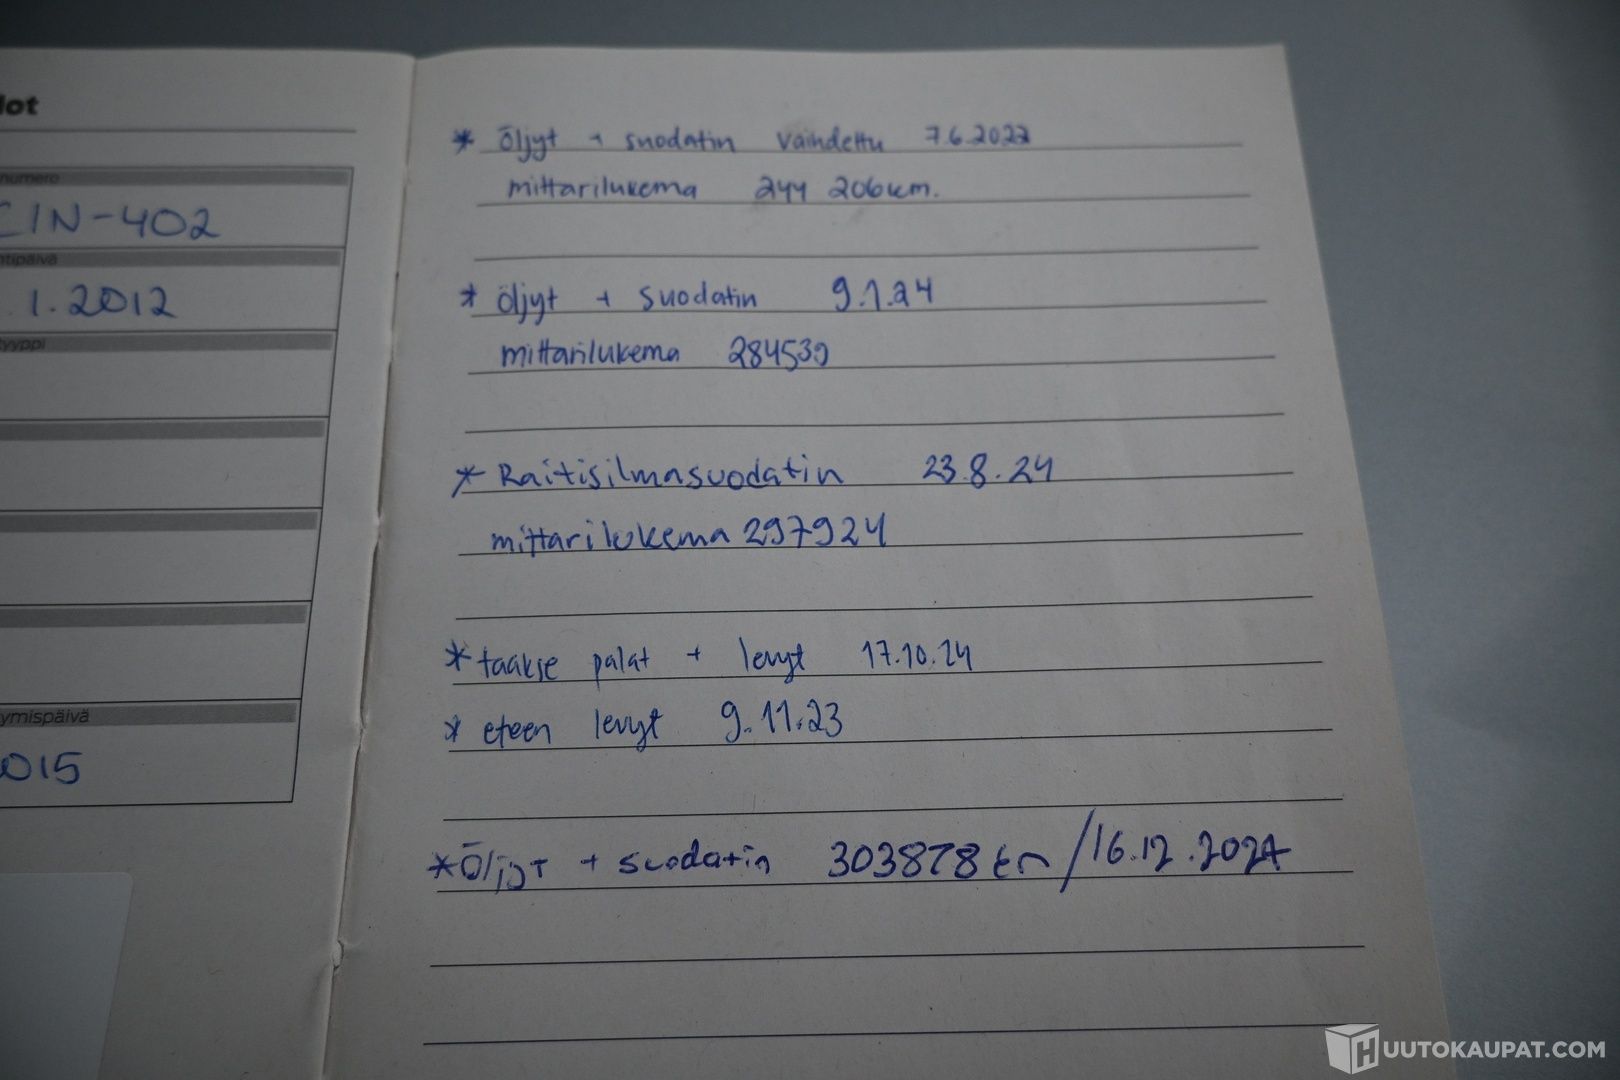 lot
numero
CIN-402
ntipäivä
.1.2012
tyyppi
ymispäivä
015
* Öljyt + suodatin vaihdettu 7.6.2022
mittarilukema 244 206km.
* öljyt + suodatin 9.1.24
mittarilukema 284539
* Raitisilmasuodatin 23.8.24
mittarilukema 297924
* taakse palat + levyt 17.10.24
* eteen levyt 9.11.23
* Öljyt + suodatin 303878 km / 16.12.2024
HUUTOKAUPAT.COM